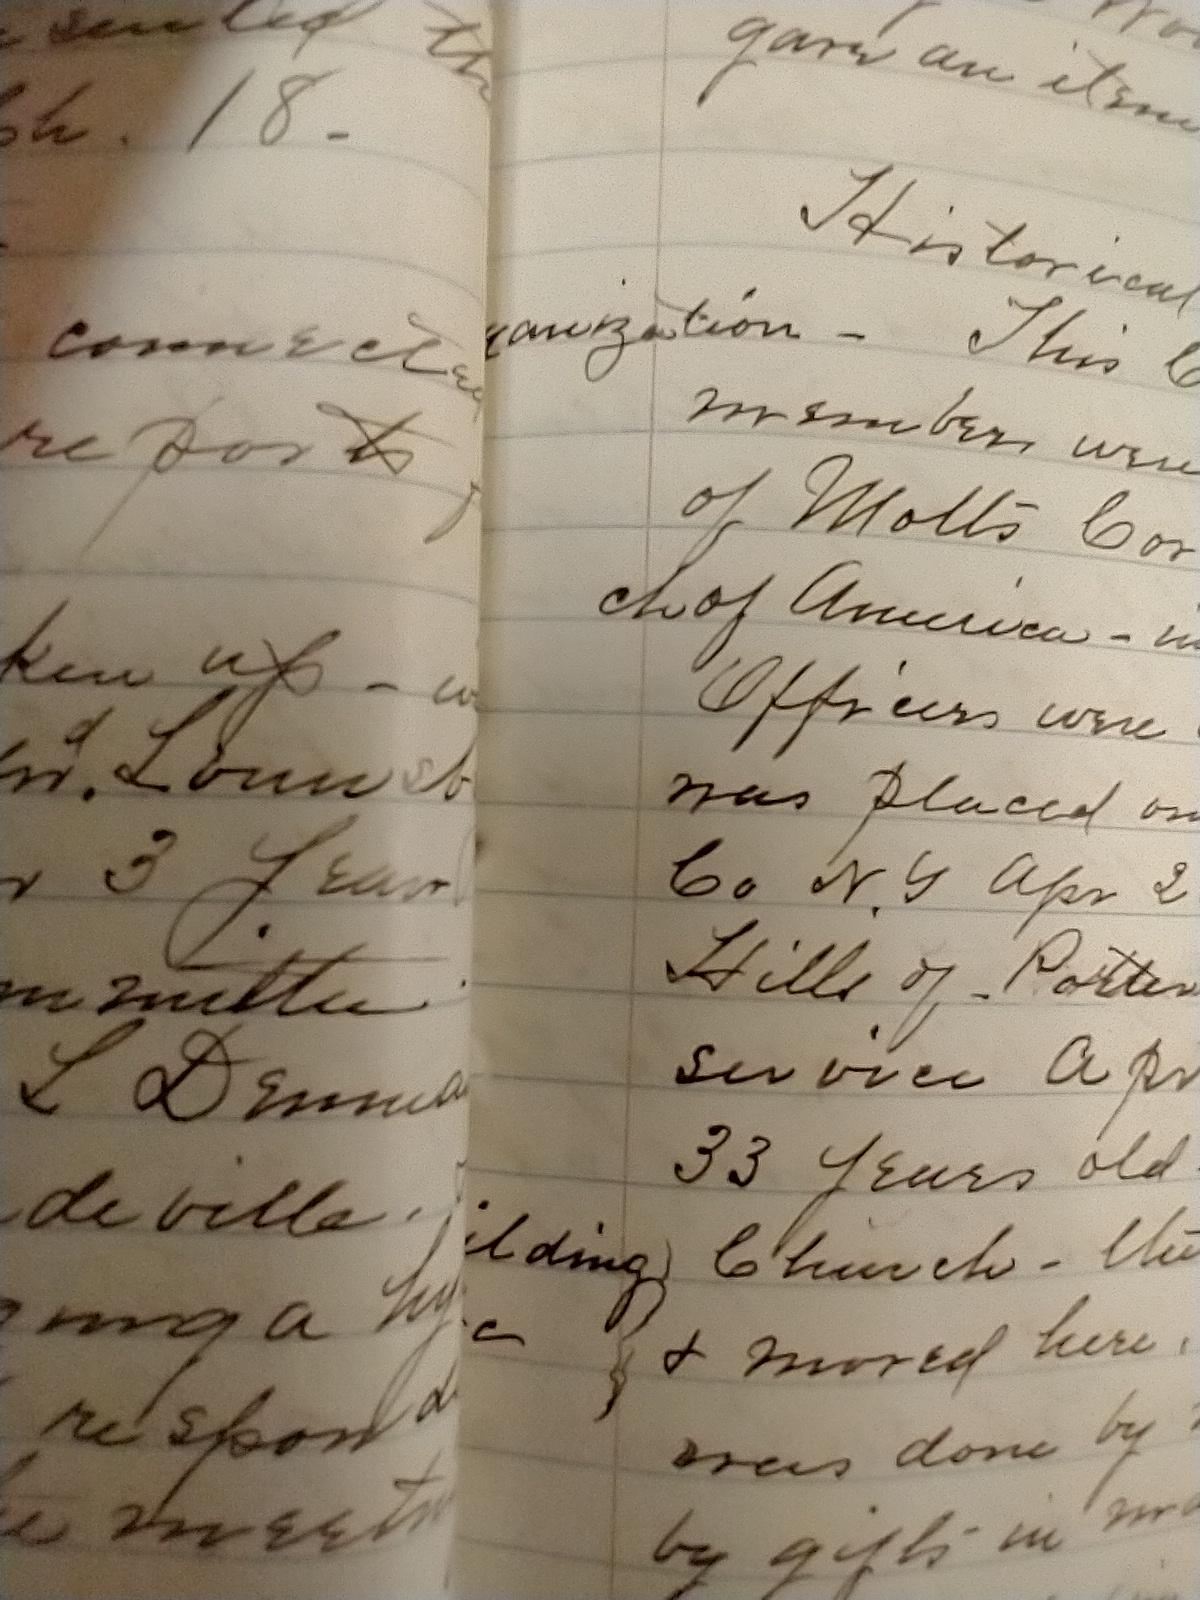 sented th
sh. 18-
connected
reports
ken up - w
Lounsb
r 3 years
mmittee
L Denma
deville.
ging a hy
respon
e meet
gave an item
Historical
ganization - This C
members were
of Motts Cor
ch of America -
Officers were
was placed on
Co N.Y Apr 2
Hills of Potter
service Apr
33 years old
ilding Church - the
& moved here.
was done by
by gifts in